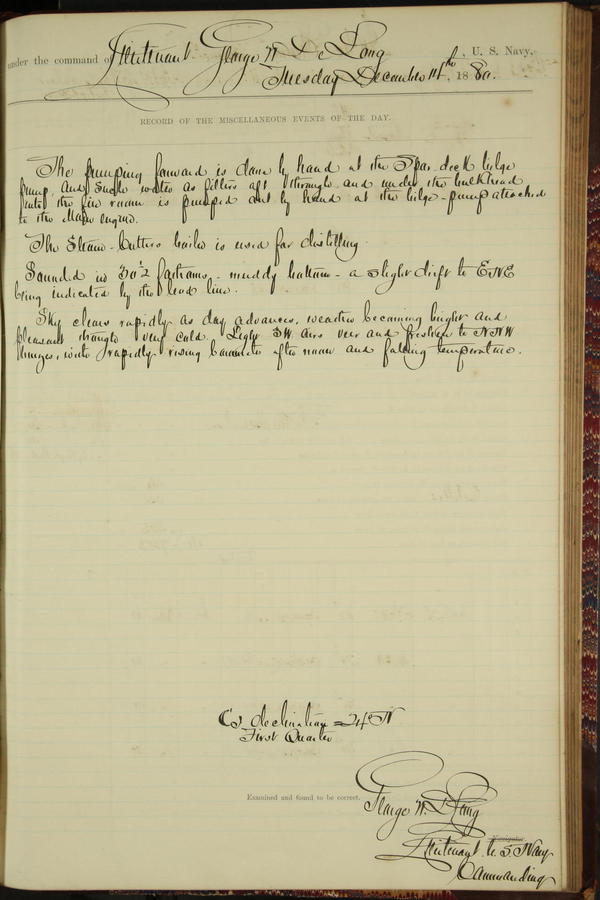 under the command of Lieutenant George W. De Long, U. S. Navy,
Tuesday December 14th, 1880.
RECORD OF THE MISCELLANEOUS EVENTS OF THE DAY.
The pumping forward is done by hand at the Spar-deck bilge
pump, and such water as filters aft through and under the bulkhead
into the fire room is pumped out by hand at the bilge-pump attached
to the Main engine.
The Steam-Cutters boiler is used for distilling.
Sounded in 30½ fathoms - muddy bottom - a slight drift to ENE
being indicated by the lead line.
Sky clears rapidly as day advances, weather becoming bright and
pleasant though very cold. Light SW airs veer and freshen to NNW
, with rapidly rising barometer after noon and falling temperature.
declination = 24° N
First Quarter
Examined and found to be correct.
George W. De Long
Navigator.
Lieutenant U. S. Navy
Commanding